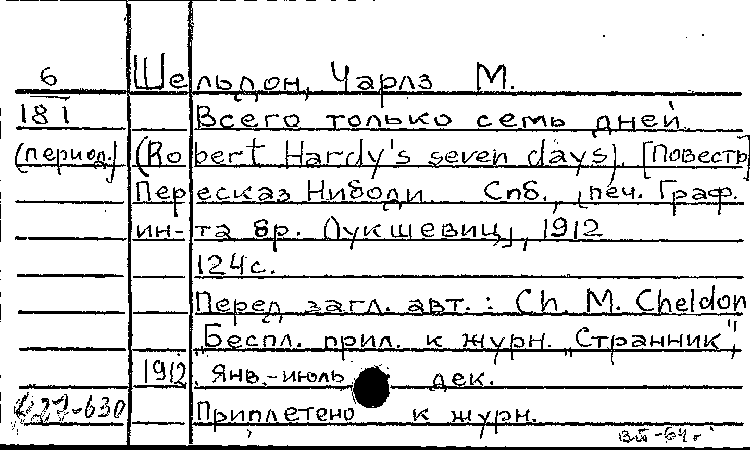 6 Шельдон, Чарлз М.
181 Всего только семь дней
(период.) (Robert Hardy's seven days). [Повесть]
Пересказ Нибоди. Спб., [печ. Граф.
ин-та бр. Лукшевиц], 1912
124с.
Перед загл. авт.: Ch. M. Cheldon
"Беспл. прил. к журн. "Странник",
1912 янв.-июль дек.
-630 Приплетено к журн.